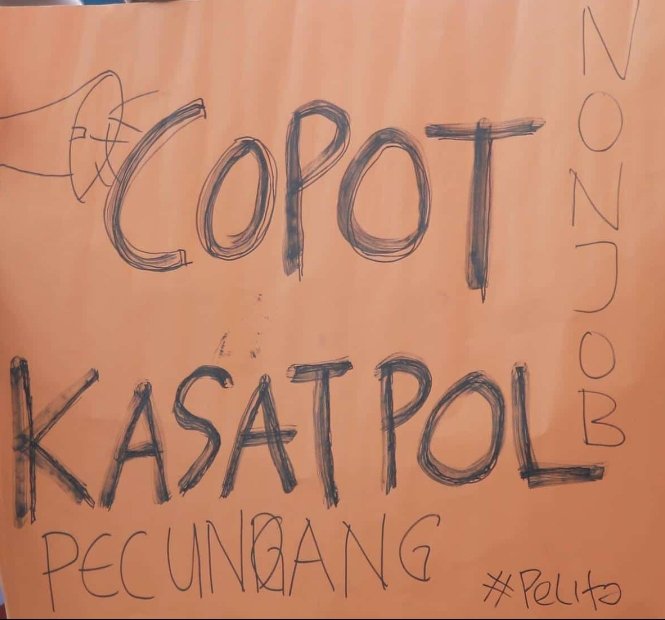 COPOT
KASATPOL
PECUNGANG
#Pelita
NONJOB